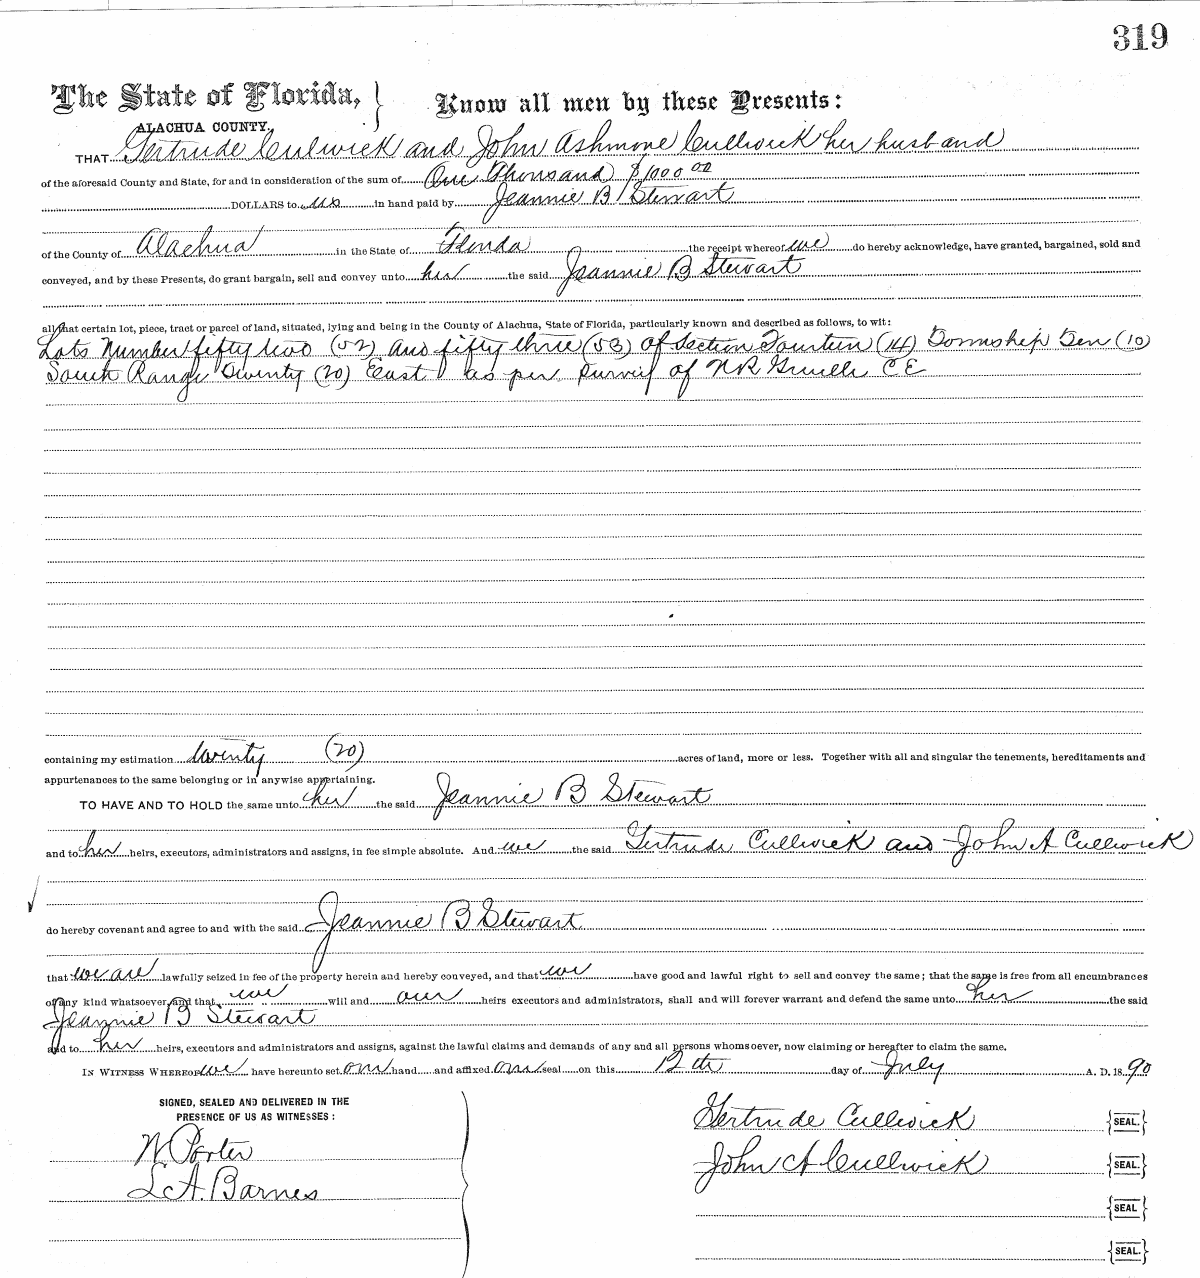 319
The State of Florida, } Know all men by these Presents:
ALACHUA COUNTY.
THAT Gertrude Cullwick and John Ashmore Cullwick her husband
of the aforesaid County and State, for and in consideration of the sum of One Thousand $1000 00
DOLLARS to us in hand paid by Jeannie B Stewart
of the County of Alachua in the State of Florida the receipt whereof we do hereby acknowledge, have granted, bargained, sold and
conveyed, and by these Presents, do grant bargain, sell and convey unto her the said Jeannie B Stewart
all that certain lot, piece, tract or parcel of land, situated, lying and being in the County of Alachua, State of Florida, particularly known and described as follows, to wit:
Lots Number fifty two (52) and fifty three (53) of Section Fourteen (14) Township Ten (10)
South Range Twenty (20) East as per Survey of N R C E
containing my estimation twenty (20) acres of land, more or less. Together with all and singular the tenements, hereditaments and
appurtenances to the same belonging or in anywise appertaining.
TO HAVE AND TO HOLD the same unto her the said Jeannie B Stewart
and to her heirs, executors, administrators and assigns, in fee simple absolute. And we the said Gertrude Cullwick and John A Cullwick
do hereby covenant and agree to and with the said Jeannie B Stewart
that we are lawfully seized in fee of the property herein and hereby conveyed, and that we have good and lawful right to sell and convey the same; that the same is free from all encumbrances
of any kind whatsoever, and that we will and our heirs executors and administrators, shall and will forever warrant and defend the same unto her the said
Jeannie B Stewart
and to her heirs, executors and administrators and assigns, against the lawful claims and demands of any and all persons whomsoever, now claiming or hereafter to claim the same.
IN WITNESS WHEREOF we have hereunto set our hand and affixed our seal on this 12th day of July A. D. 18 90
SIGNED, SEALED AND DELIVERED IN THE
PRESENCE OF US AS WITNESSES:
Gertrude Cullwick {SEAL.}
W Porter
John A Cullwick {SEAL.}
L A. Barnes
{SEAL}
{SEAL.}